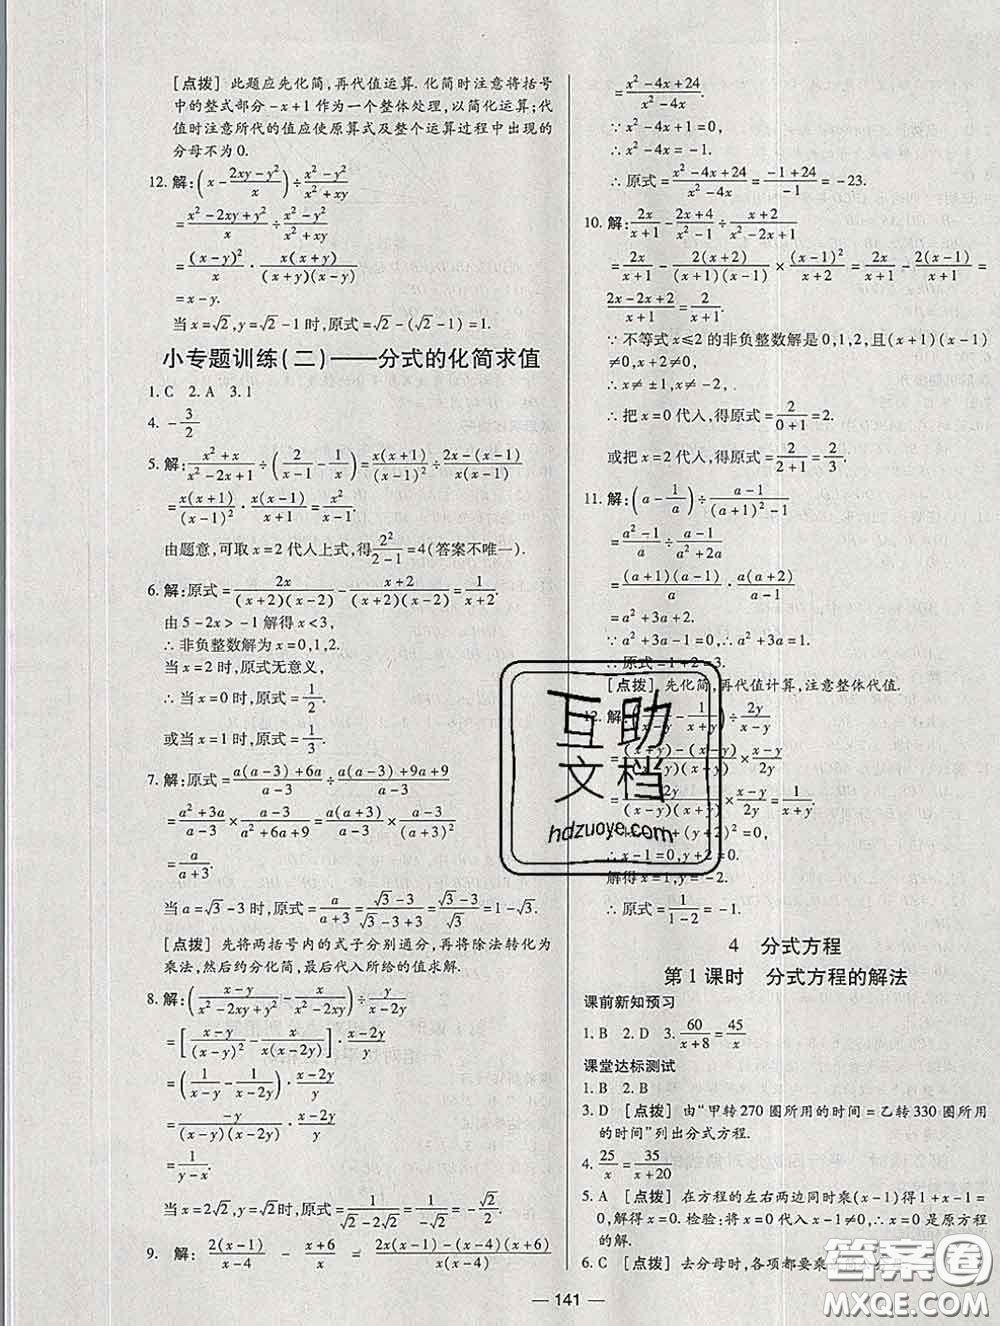 [点拨] 此题应先化简,再代值运算.化简时注意将括号
中的整式部分 -x+1 作为一个整体处理,以简化运算;代
值时注意所代的值应使原算式及整个运算过程中出现的
分母不为 0.
12. 解: (x - (2xy-y²)/x) ÷ (x²-y²)/(x²+xy)
= (x²-2xy+y²)/x ÷ (x²-y²)/(x²+xy)
= (x-y)²/x · x(x+y)/((x+y)(x-y))
= x-y.
当 x=√2, y=√2-1 时,原式=√2-(√2-1)=1.
小专题训练(二)——分式的化简求值
1. C 2. A 3. 1
4. -3/2
5. 解: (x²+x)/(x²-2x+1) ÷ (2/(x-1) - 1/x) = x(x+1)/(x-1)² ÷ (2x-(x-1))/(x(x-1))
= x(x+1)/(x-1)² · x(x-1)/(x+1) = x²/(x-1).
由题意,可取 x=2 代入上式,得 2²/(2-1) = 4(答案不唯一).
6. 解:原式 = 2x/((x+2)(x-2)) - (x+2)/((x+2)(x-2)) = 1/(x+2).
由 5-2x>-1 解得 x<3,
∴ 非负整数解为 x=0,1,2.
当 x=2 时,原式无意义,
∴ 当 x=0 时,原式= 1/2.
或当 x=1 时,原式= 1/3.
7. 解:原式 = (a(a-3)+6a)/(a-3) ÷ (a(a-3)+9a+9)/(a-3)
= (a²+3a)/(a-3) × (a-3)/(a²+6a+9) = a(a+3)/(a-3) × (a-3)/(a+3)²
= a/(a+3).
当 a=√3-3 时,原式= a/(a+3) = (√3-3)/(√3-3+3) = (√3-3)/√3 = 1-√3.
[点拨] 先将两括号内的式子分别通分,再将除法转化为
乘法,然后约分化简,最后代入所给的值求解.
8. 解: ((x-y)/(x²-2xy+y²) - (x-y)/(x²-2xy)) ÷ y/(x-2y)
= [(x-y)/(x-y)² - (x-y)/(x(x-2y))] · (x-2y)/y
= (1/(x-y) - (x-y)/(x(x-2y))) · (x-2y)/y
-y
1/(y-x).
当 x=2√2, y=√2 时,原式= 1/(√2-2√2) = 1/(-√2) = -√2/2.
9. 解: 2(x-1)/(x-4) - (x+6)/x = (2x(x-1)-(x-4)(x+6))/(x(x-4))
= (x²-4x+24)/(x²-4x).
∵ x²-4x+1=0,
∴ x²-4x=-1.
∴ 原式= (x²-4x+24)/(x²-4x) = (-1+24)/(-1) = -23.
10. 解: 2x/(x+1) - (2x+4)/(x²-1) ÷ (x+2)/(x²-2x+1)
= 2x/(x+1) - 2(x+2)/((x+1)(x-1)) × (x-1)²/(x+2) = 2x/(x+1) - 2(x-1)/(x+1) =
(2x-2x+2)/(x+1) = 2/(x+1).
∵ 不等式 x≤2 的非负整数解是 0,1,2,且(x+1)(x-1)
≠0,∴ x≠±1,
∴ 把 x=0 代入,得原式= 2/(0+1) = 2.
或把 x=2 代入,得原式= 2/(2+1) = 2/3.
11. 解: (a - 1/a) ÷ (a-1)/((a+1)²-1)
= (a²-1)/a ÷ (a-1)/(a²+2a)
= (a+1)(a-1)/a · a(a+2)/(a-1)
= a²+3a+2.
∵ a²+3a-1=0,∴ a²+3a=1.
∴ 原式=1+2=3.
[点拨] 先化简,再代值计算,注意整体代值.
12. 解 - 1/(x+y)) ÷ 2y/(x-y)
(x+y)-(x-y) × (x-y)/2y
2y/((x-y)(x+y)) × (x-y)/2y = 1/(x+y).
+(y+2)²=0,
∴ x-1=0, y+2=0.
解得 x=1, y=-2.
∴ 原式= 1/(1-2) = -1.
4 分式方程
第 1 课时 分式方程的解法
课前新知预习
1. B 2. D 3. 60/(x+8) = 45/x
课堂达标测试
1. B 2. B
3. D [点拨] 由“甲转 270 圈所用的时间=乙转 330 圈所用
的时间”列出分式方程.
4. 25/x = 35/(x+20)
5. A [点拨] 在方程的左右两边同时乘(x-1)得 1+x-1=
0,解得 x=0. 检验:将 x=0 代入 x-1≠0,∴ x=0 是原方程
的解.
6. C [点拨] 去分母时,各项都要乘
— 141 —
互助
文档
hdzuoye.com
答案圈
MXQE.COM